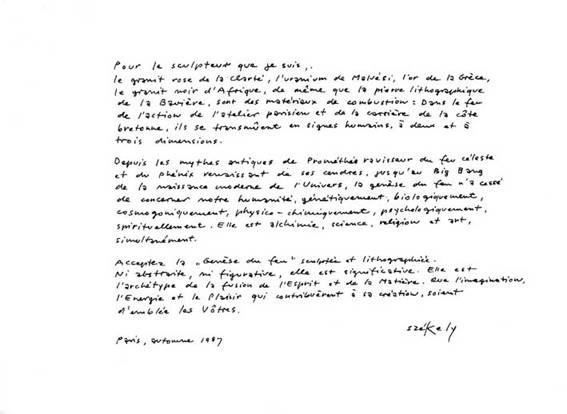 Pour le sculpteur que je suis,
le granit rose de la Clarté, l'uranium de Malvési, l'or de la Grèce,
le granit noir d'Afrique, de même que la pierre lithographique
de la Bavière, sont des matériaux de combustion : Dans le feu
de l'action de l'atelier parisien et de la carrière de la côte
bretonne, ils se transmuent en signes humains, à deux et à
trois dimensions.
Depuis les mythes antiques de Prométhée ravisseur du feu céleste
et du phénix renaissant de ses cendres, jusqu'au Big Bang
de la naissance moderne de l'Univers, la genèse du feu n'a cessé
de concerner notre humanité, génétiquement, biologiquement,
cosmogoniquement, physico-chimiquement, psychologiquement,
spirituellement. Elle est alchimie, science, religion et art,
simultanément.
Acceptez la „Genèse du feu" sculptée et lithographiée.
Ni abstraite, ni figurative, elle est significative. Elle est
l'archétype de la fusion de l'Esprit et de la Matière. Que l'imagination,
l'Energie et le Plaisir qui contribuèrent à sa création, soient
d'emblée les Vôtres.
Székely
Paris, automne 1987